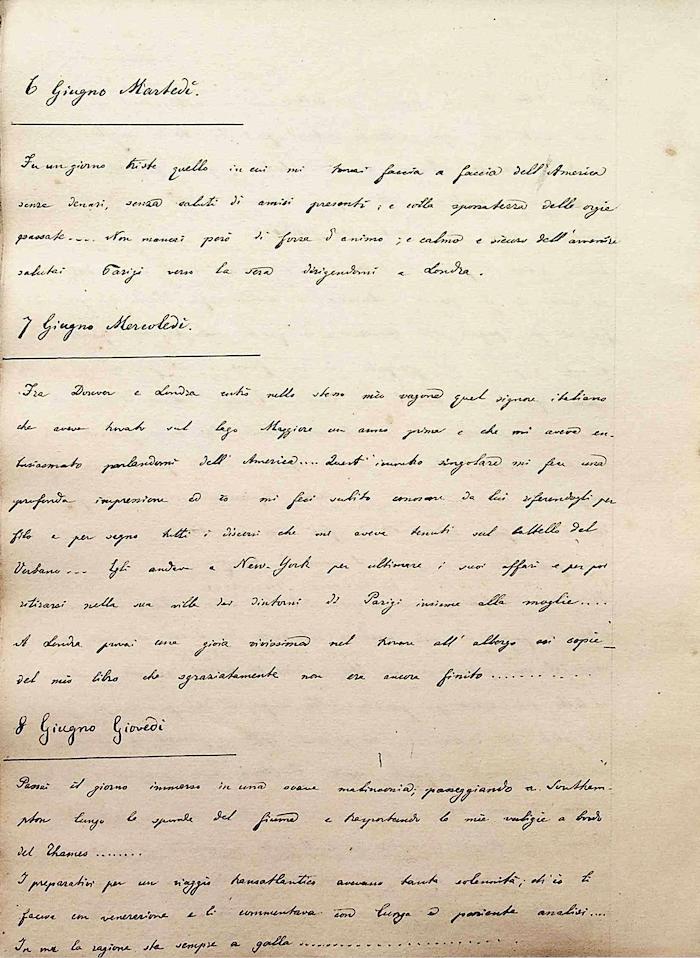 6 Giugno Martedì.
Fu un giorno triste quello in cui mi trovai faccia a faccia dell'America
senza denari, senza saluti di amici presenti; e colla spossatezza delle orgie
passate.... Non mancai però di forza d'animo; e calmo e sicuro dell'avvenire
salutai Parigi verso la sera dirigendomi a Londra.
7 Giugno Mercoledì.
Fra Douver e Londra entrò nello stesso mio vagone quel signore italiano
che aveva trovato sul lago Maggiore un anno prima e che mi aveva en-
tusiasmato parlandomi dell'America.... Quest'incontro singolare mi fece una
profonda impressione ed io mi feci subito conoscere da lui riferendogli per
filo e per segno tutti i discorsi che mi aveva tenuti sul battello del
Verbano... Egli andava a New-York per ultimare i suoi affari e per poi
ritirarsi nella sua villa dei dintorni di Parigi insieme alla moglie....
A Londra provai una gioia vivissima nel trovare all'albergo sei copie
del mio libro che sgraziatamente non era ancora finito..........
8 Giugno Giovedì
Passai il giorno immerso in una soave malinconia; passeggiando a Southam-
pton lungo le sponde del fiume e trasportando le mie valigie a bordo
del Thames........
I preparativi per un viaggio transatlantico avevano tanta solennità; ch'io li
faceva con venerazione e li commentava con lunga e paziente analisi....
In me la ragione sta sempre a galla..........................